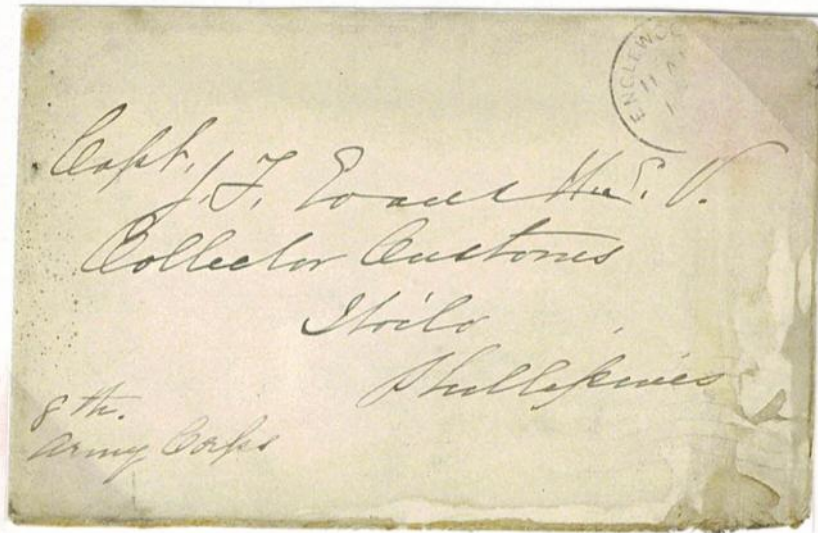 ENGLEWOO
11 A
Capt.
J. F. Evans U. S. V.
Collector Customs
Iloilo
Phillipines
8th.
Army Corps